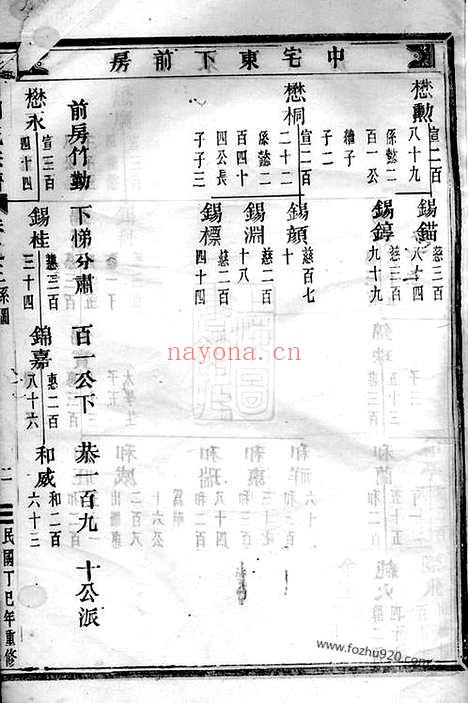 中宅東下前房
懋勳
宣二百
八十九
係懿二
百一公
繪子
子二
錫錨
慈三百
八十四
錫錞
慈三百
九十九
懋桐
宣二百
二十二
係懿二
百四十
四公長
子子三
錫顔
慈百七
錫淵
慈二百
十八
錫標
慈二百
四十四
前房竹勤 下悌分肅 百一公下 恭一百九 十公派
懋永
宣三百
四十四
錫桂
慈三百
三十四
錦嘉
惠二百
八十六
和威
和二百
六十三
系圖
二
民國丁巳年重修
nayona.cn
www.fozhu920.com